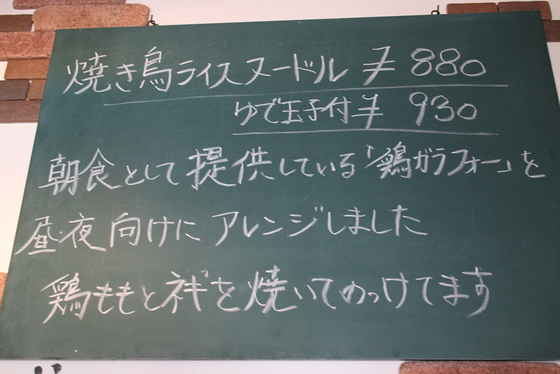 焼き鳥ライスヌードル ¥880
ゆで玉子付 ¥930
朝食として提供している「鶏ガラフォー」を
昼・夜向けにアレンジしました
鶏ももとネギを焼いてのっけてます